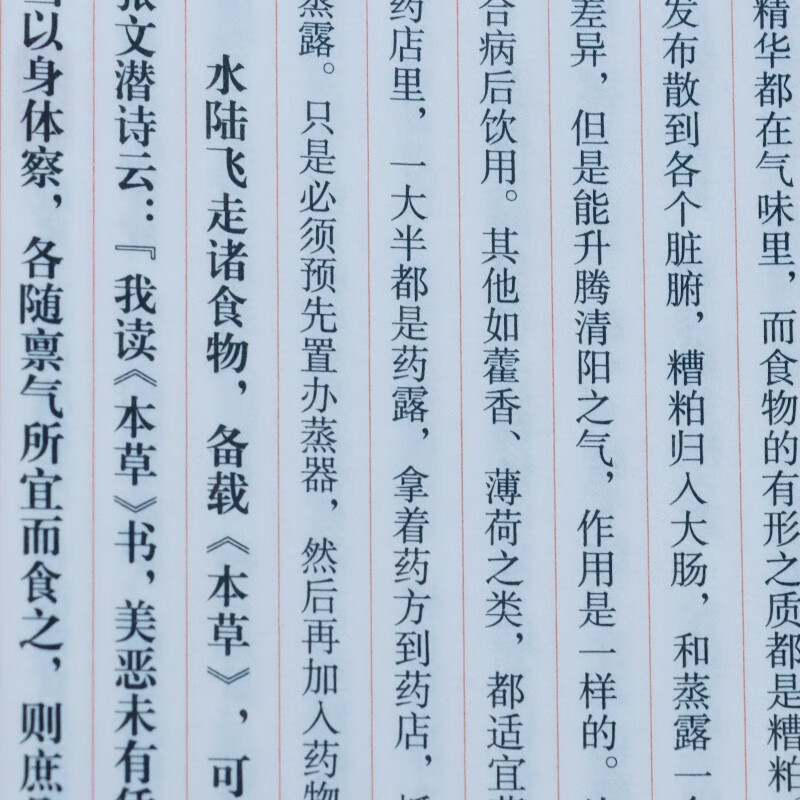 精华都在气味里，而食物的有形之质都是糟粕，
发布散到各个脏腑，糟粕归入大肠，和蒸露一
差异，但是能升腾清阳之气，作用是一样的。
合病后饮用。其他如藿香、薄荷之类，都适宜
药店里，一大半都是药露，拿着药方到药店，
蒸露。只是必须预先置办蒸器，然后再加入药物
水陆飞走诸食物，备载《本草》，可
张文潜诗云：『我读《本草》书，美恶未有
以身体察，各随禀气所宜而食之，则庶